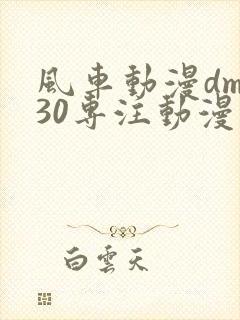 風車動漫dm
30專注動漫
白雲天